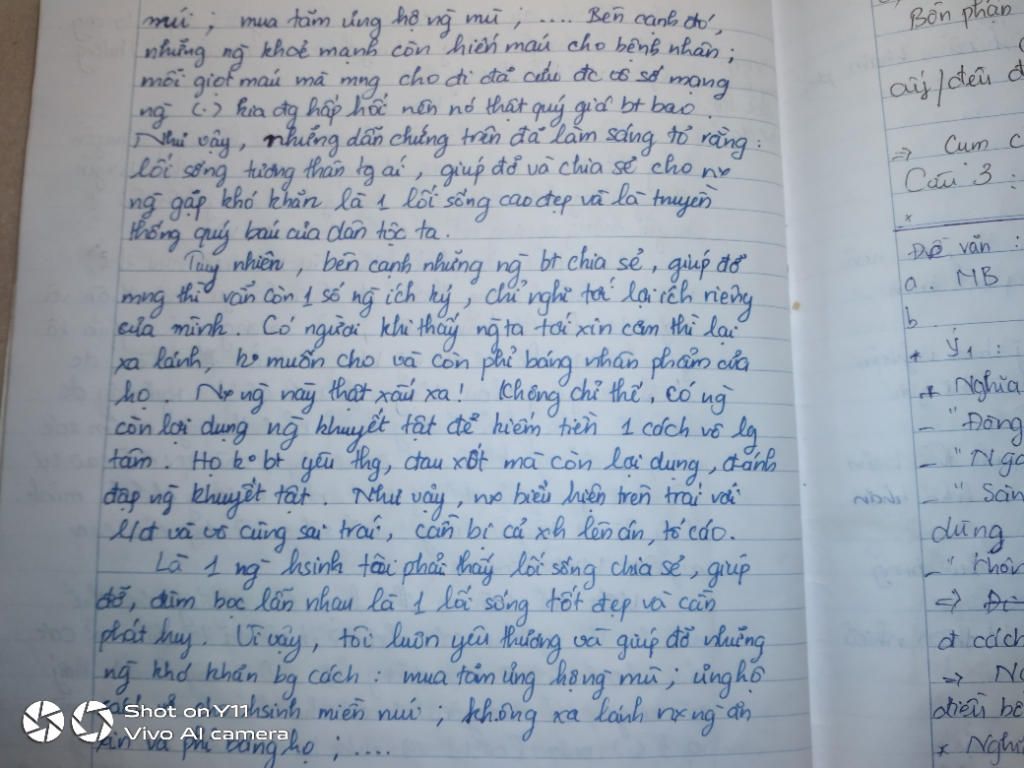 múi ; mua tăm ủng hộ ng mù ; .... Bên cạnh đó,
những ng khoẻ mạnh còn hiến máu cho bệnh nhân ;
mỗi giọt máu mà mng cho đi đã cứu đc vô số mạng
ng (.) kia đg hấp hối nên nó thật quý giá bt bao.
Như vậy, những dẫn chứng trên đã làm sáng tỏ rằng :
lối sống tương thân tg ái, giúp đỡ và chia sẻ cho nx
ng gặp khó khăn là 1 lối sống cao đẹp và là truyền
thống quý báu của dân tộc ta.
Tuy nhiên, bên cạnh những ng bt chia sẻ, giúp đỡ
mng thì vẫn còn 1 số ng ích kỷ, chỉ nghĩ tới lợi ích riêng
của mình. Có người, khi thấy ng ta tới xin cơm thì lại
xa lánh, ko muốn cho và còn phỉ báng nhân phẩm của
họ. Nx ng này thật xấu xa! Không chỉ thế, có ng
còn lợi dụng ng khuyết tật để kiếm tiền 1 cách vô lg
tâm. Họ ko bt yêu thg, đau xót mà còn lợi dụng, đánh
đập ng khuyết tật. Như vậy, nx biểu hiện trên trái với
l/đ và vô cùng sai trái, cần bị cả xh lên án, tố cáo.
Là 1 ng hsinh tôi phải thấy lối sống chia sẻ, giúp
đỡ, đùm bọc lẫn nhau là 1 lối sống tốt đẹp và cần
phát huy. Vì vậy, tôi luôn yêu thương và giúp đỡ những
ng khó khăn bg cách : mua tăm ủng hộ ng mù ; ủng hộ
hsinh miền núi ; không xa lánh nx ng ăn
xin và phỉ báng họ ; ....
Bổn phận
ai/đều đ
=> Cụm C
Câu 3 :
Đề văn :
a. MB
b
* Ý1 :
+ Nghĩa
- "Đồng
- "Ngo
- "Sàn
dùng
- "Khôn
=>
a cách
-> No
điều bê
* Nghĩ
Shot on Y11
Vivo AI camera